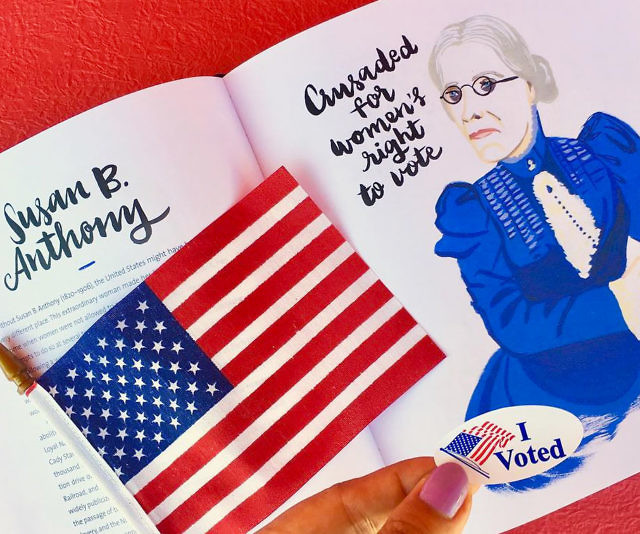 Susan B.
Anthony
without Susan B. Anthony (1820–1906), the United States might have
different place. This extraordinary woman made her
when women were not allowed
to do so at several
aboliti
Loyal N
Cady Sta
thousand
tion drive o
Railroad, and
widely publiciz
the passage of t
Crusaded
for
women's
right
to vote
I
Voted